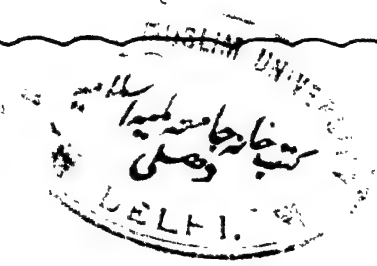 MUSLIM UNIVE
کتب خانہ جامعہ ملیہ اسلامیہ
دہلی
DELHI.